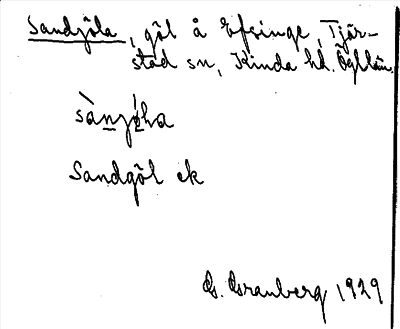 Sandgöla, göl å Efsinge, Tjär-
stad sn, Kinda hd. Ögllän.
Sandgöl ek
G. Granberg 1929